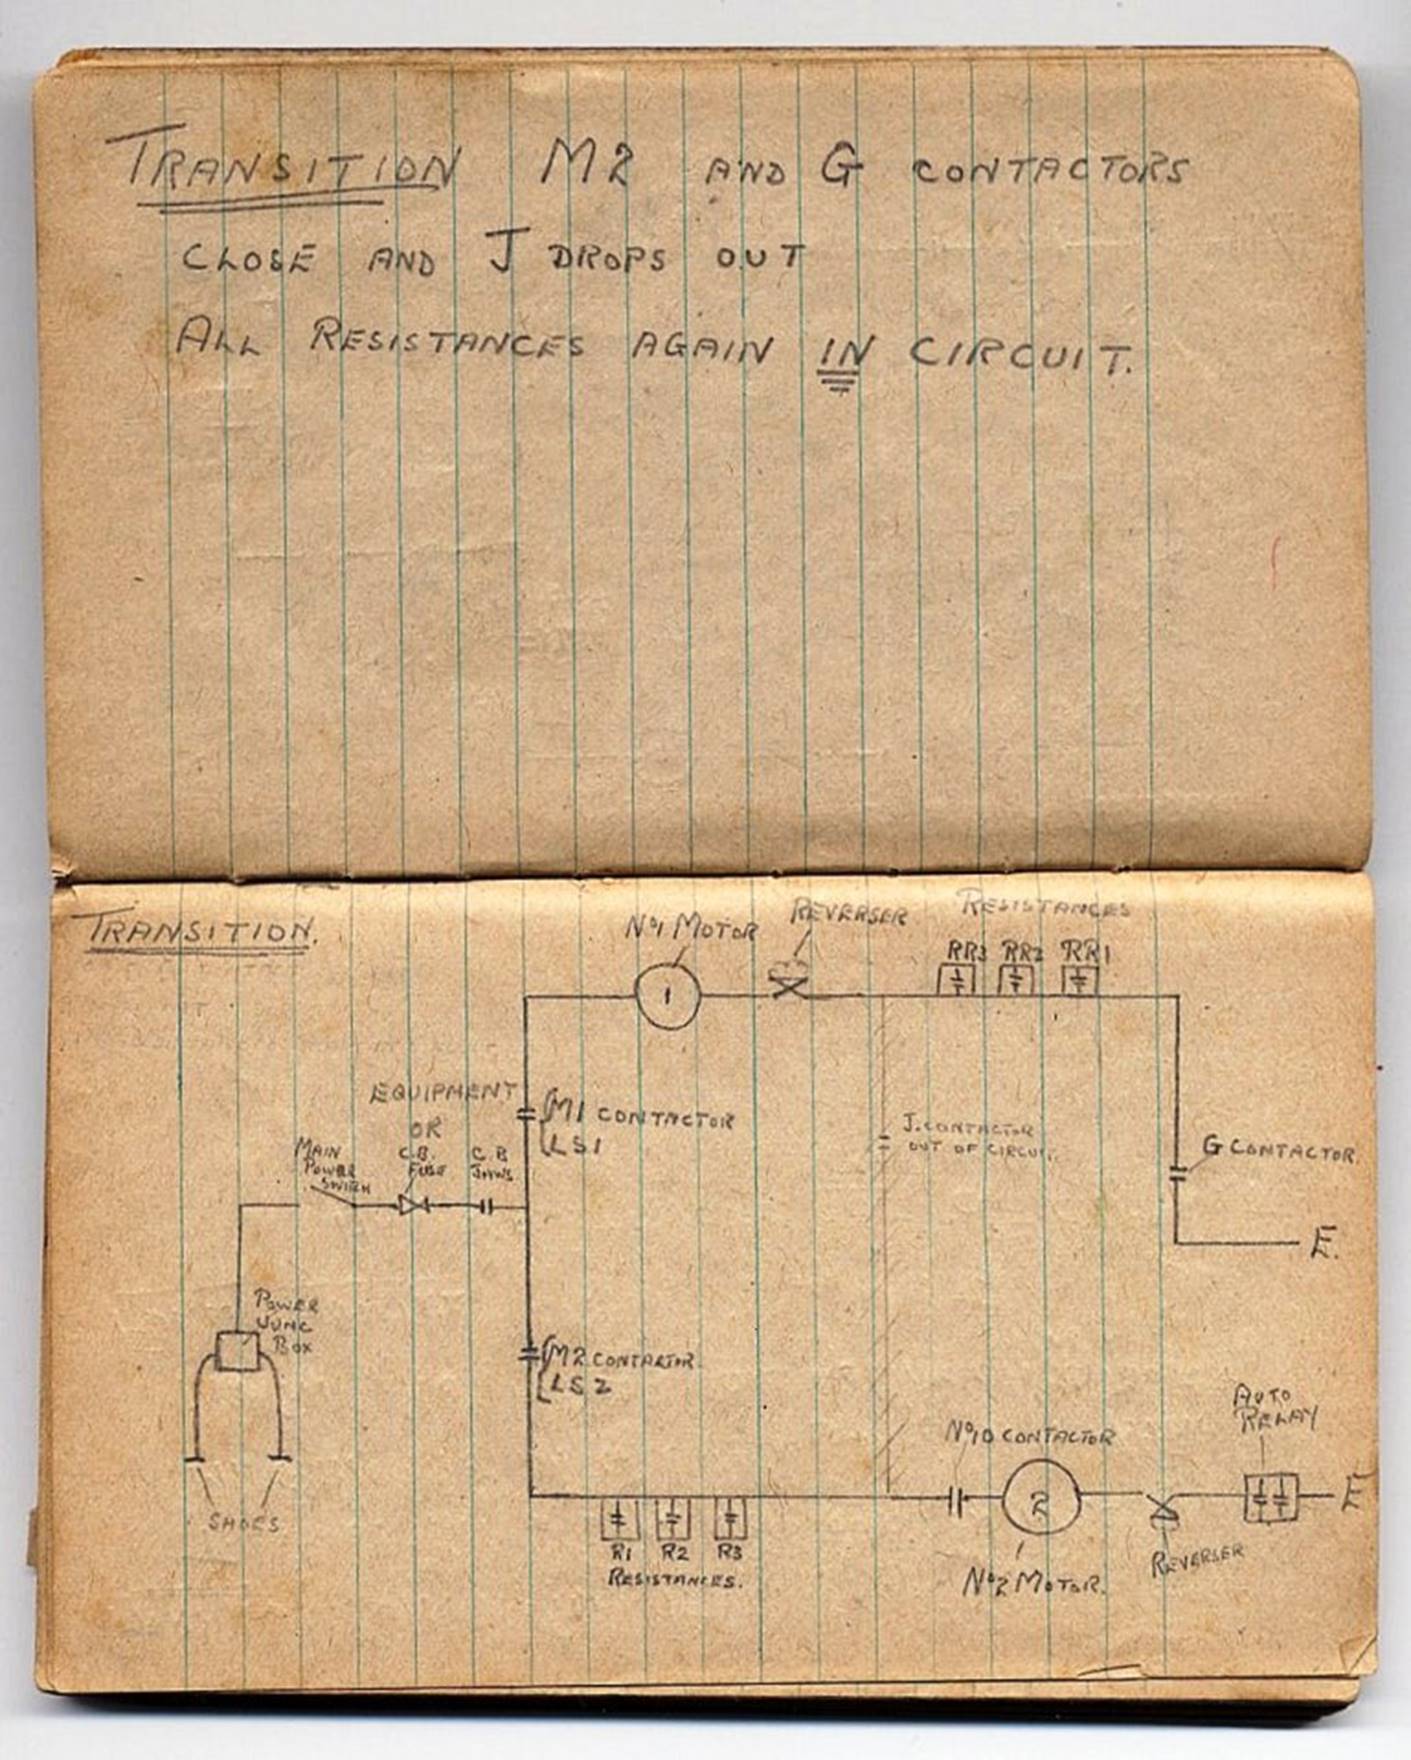 TRANSITION M2 AND G CONTACTORS
CLOSE AND J DROPS OUT
ALL RESISTANCES AGAIN IN CIRCUIT.
TRANSITION.
Nº1 MOTOR
REVERSER
RESISTANCES
RR3 RR2 RR1
1
EQUIPMENT
OR
C.B.
FUSE
MAIN
POWER
SWITCH
C.B
JAWS
M1 CONTACTOR
LS1
J. CONTACTOR
OUT OF CIRCUIT.
G CONTACTOR.
E.
POWER
JUNC
BOX
M2 CONTACTOR.
LS2
SHOES
R1 R2 R3
RESISTANCES.
Nº10 CONTACTOR
2
Nº2 MOTOR.
REVERSER
AUTO
RELAY
E